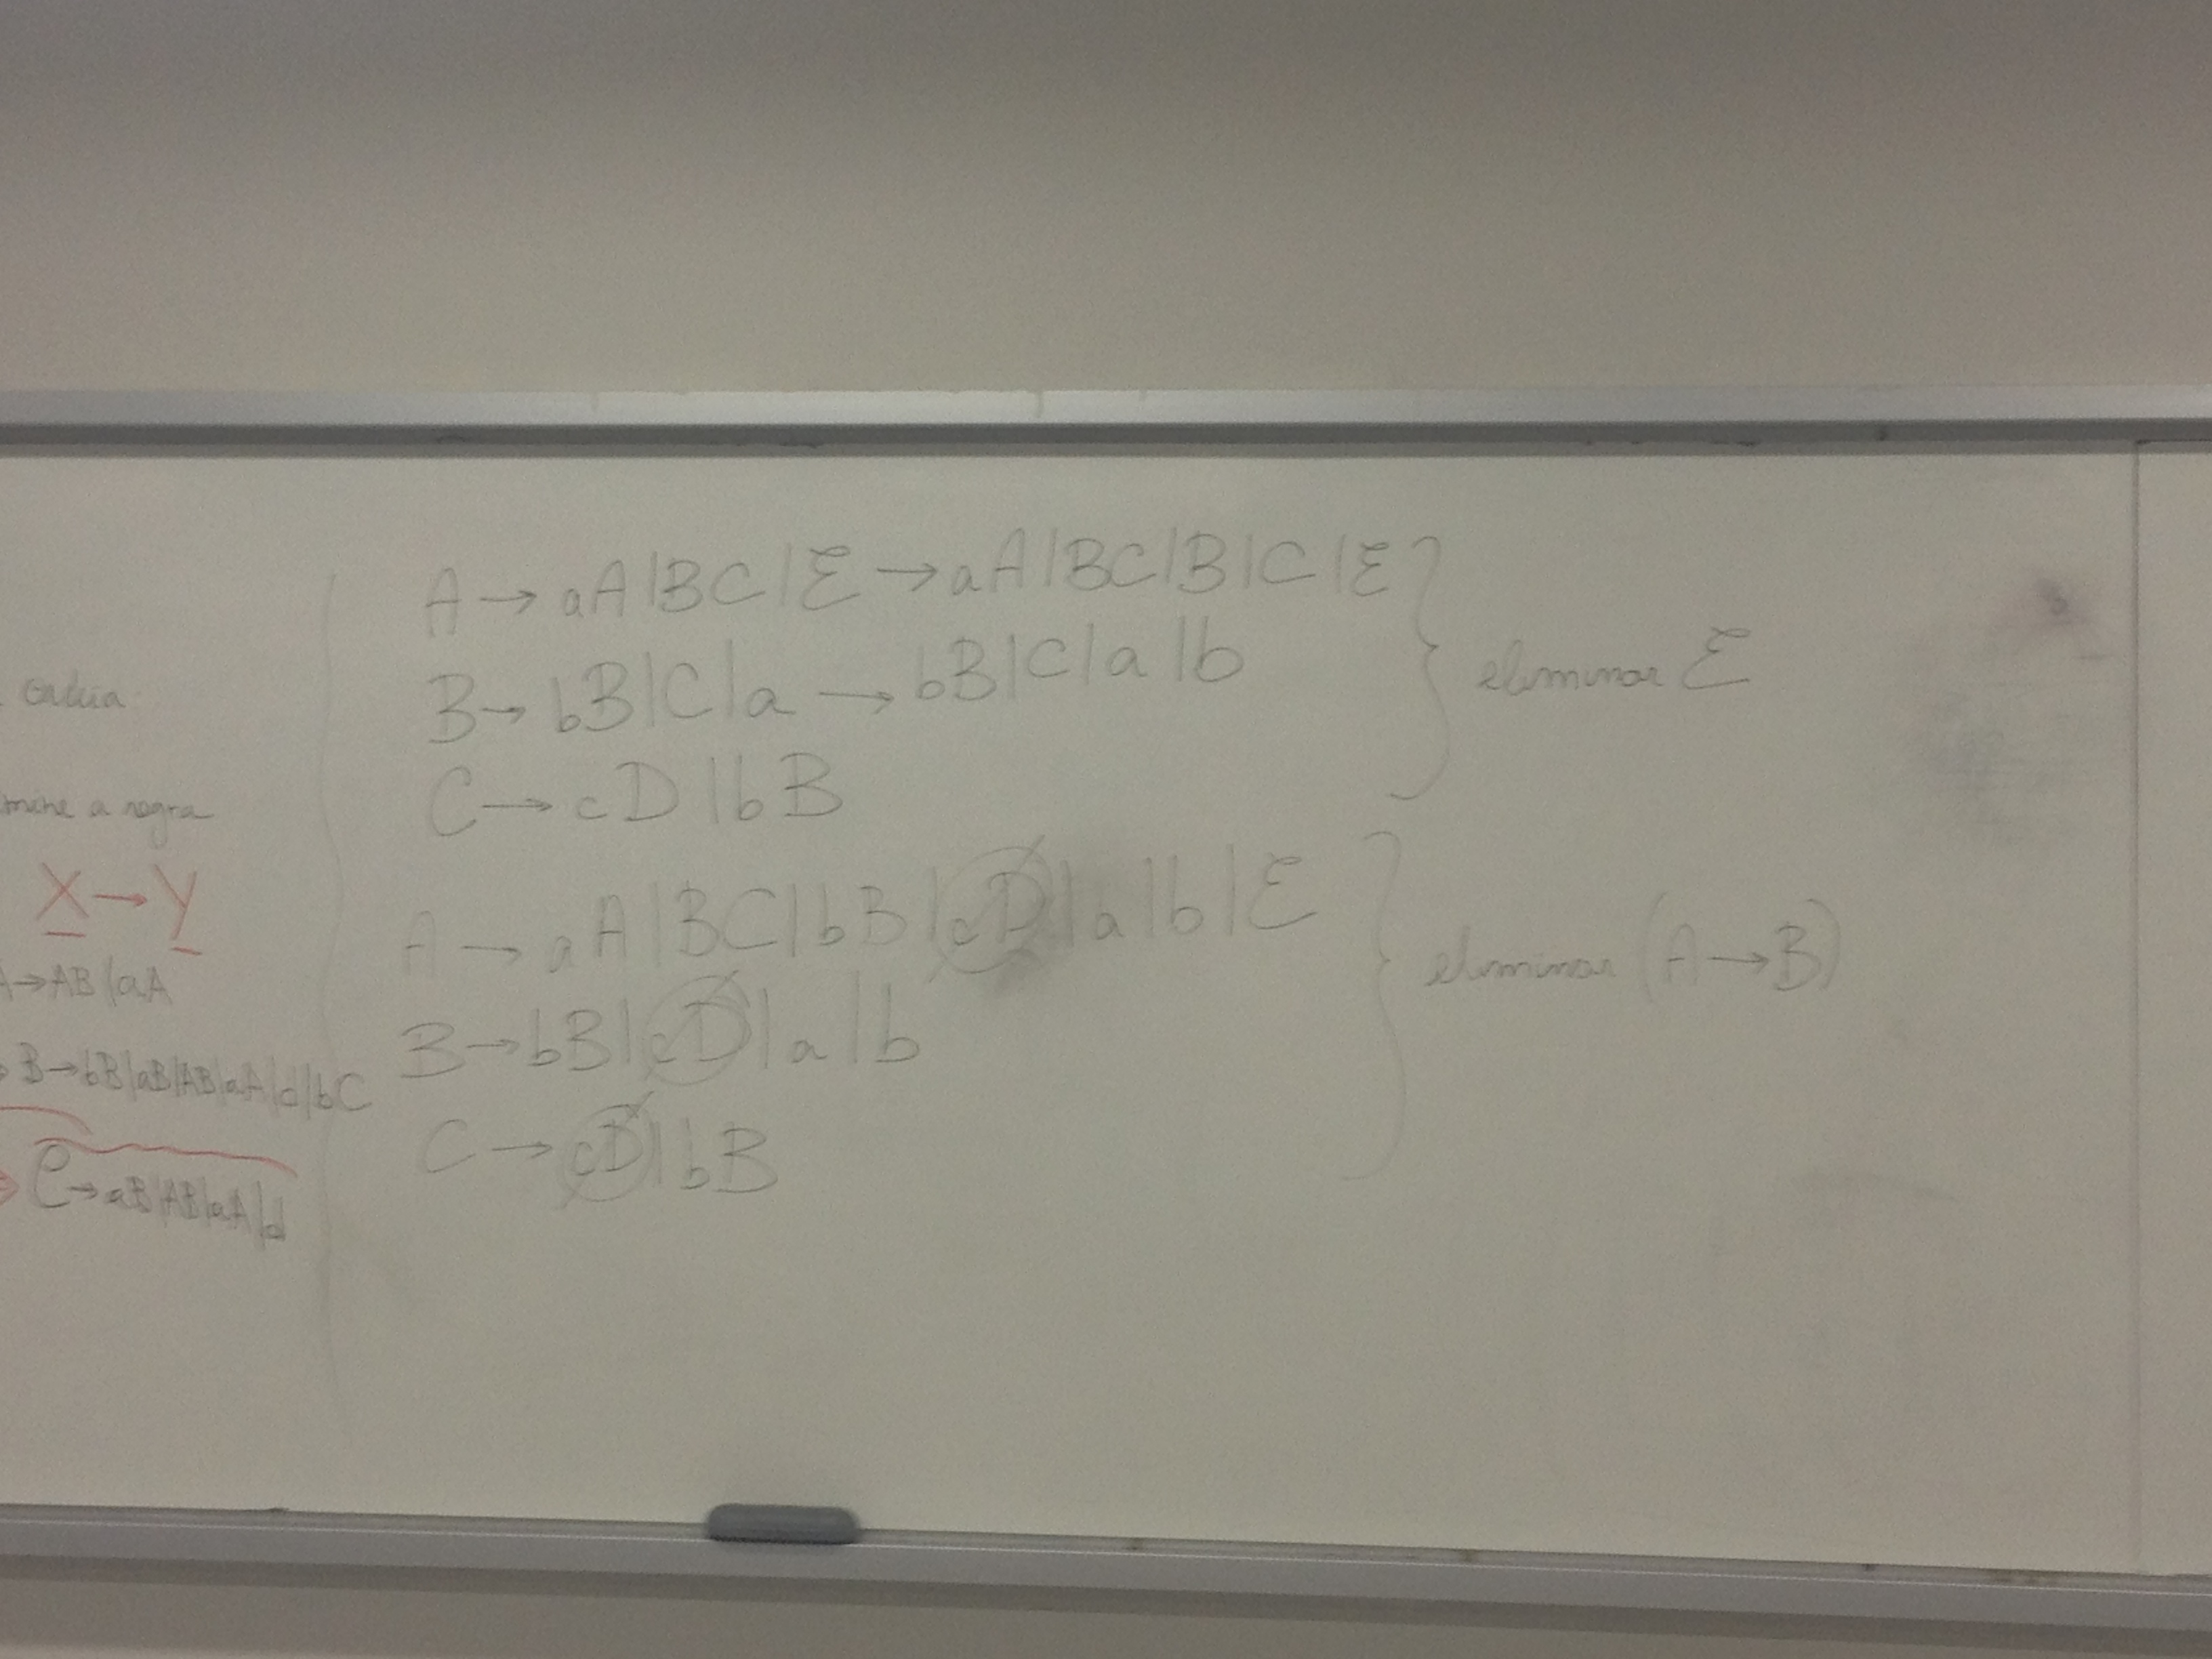 cadeia
a regra
X → Y
A → AB | aA
B → bB | aB | AB | aA | d | bC
C → aB | AB | aA | d
A → aA | BC | ε → aA | BC | B | C | ε
B → bB | C | a → bB | C | a | b
C → cD | bB
eliminar ε
A → aA | BC | bB | cD | a | b | ε
B → bB | cD | a | b
C → cD | bB
eliminar (A → B)